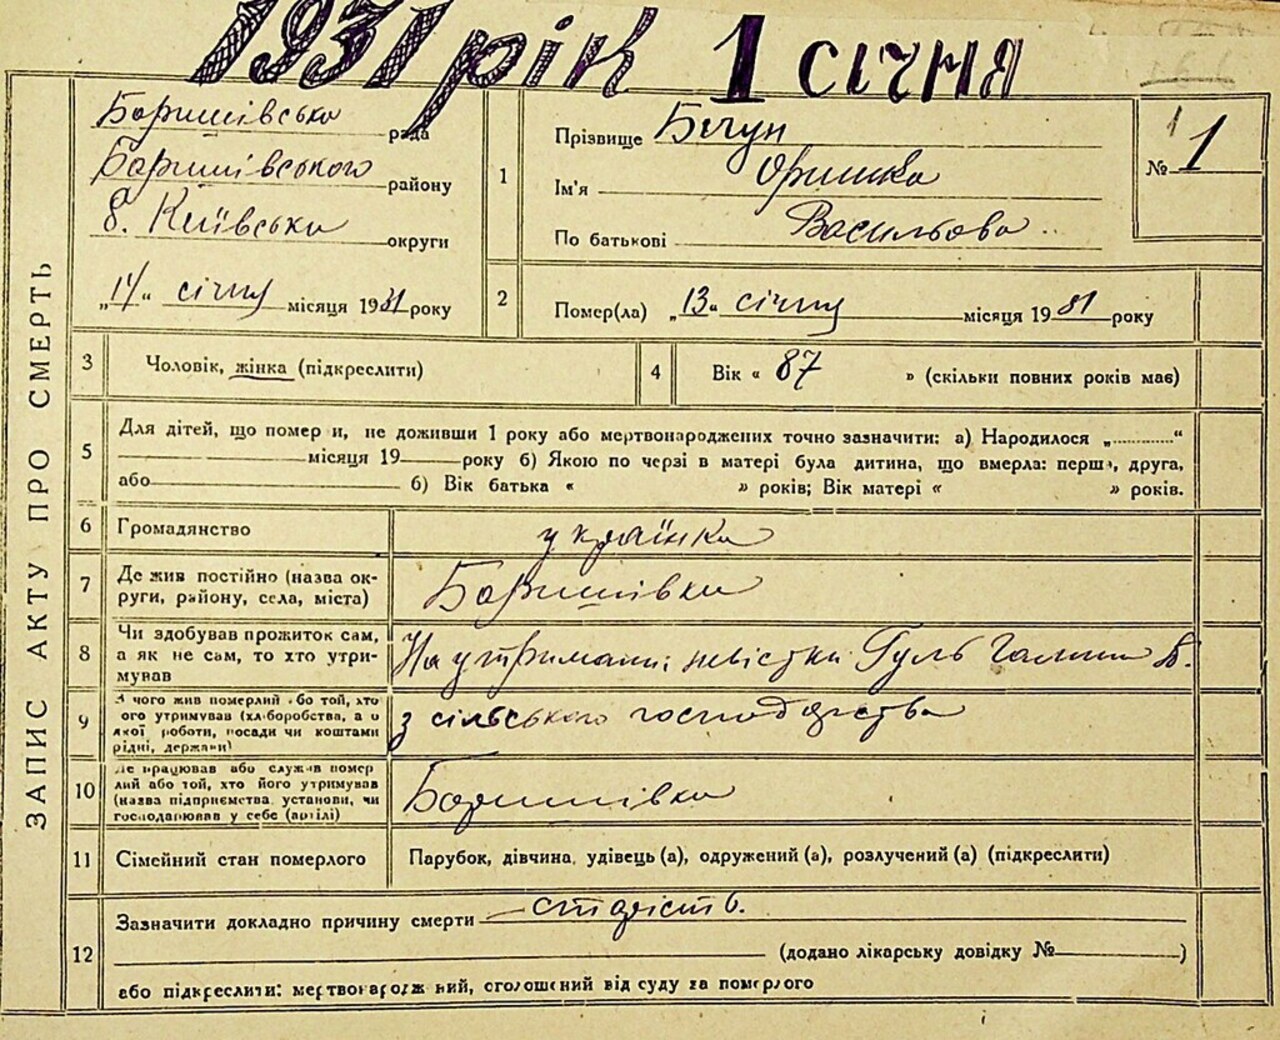 1931 рік 1 січня
ЗАПИС АКТУ ПРО СМЕРТЬ
Баришівська рада
Баришівського району
б. Київська округи
„14“ січня місяця 1931 року
1
Прізвище Бегун
Ім'я Оришка
По батькові Васильова
№ 1
2
Помер(ла) „13“ січня місяця 1931 року
3
Чоловік, жінка (підкреслити)
4
Вік « 87 » (скільки повних років має)
5
Для дітей, що помер и, не доживши 1 року або мертвонароджених точно зазначити: а) Народилося „...........“
місяця 19 року б) Якою по черзі в матері була дитина, що вмерла: перша, друга,
або б) Вік батька « » років; Вік матері « » років.
6
Громадянство
українка
7
Де жив постійно (назва ок-
руги, району, села, міста)
Баришівка
8
Чи здобував прожиток сам,
а як не сам, то хто утри-
мував
На утриманні невістки Гуль Галини В.
9
З чого жив померлий або той, хто
його утримував (хліборобства, а о
якої роботи, посади чи коштами
рідні, держави)
з сільського господарства
10
Де працював або служив помер
лий або той, хто його утримував
(назва підприємства, установи, чи
господарював у себе (артілі)
Баришівка
11
Сімейний стан померлого
Парубок, дівчина, удівець (а), одружений (а), розлучений (а) (підкреслити)
12
Зазначити докладно причину смерти старість.
(додано лікарську довідку № )
або підкреслити: мертвонародж ний, оголошений від суду за померлого